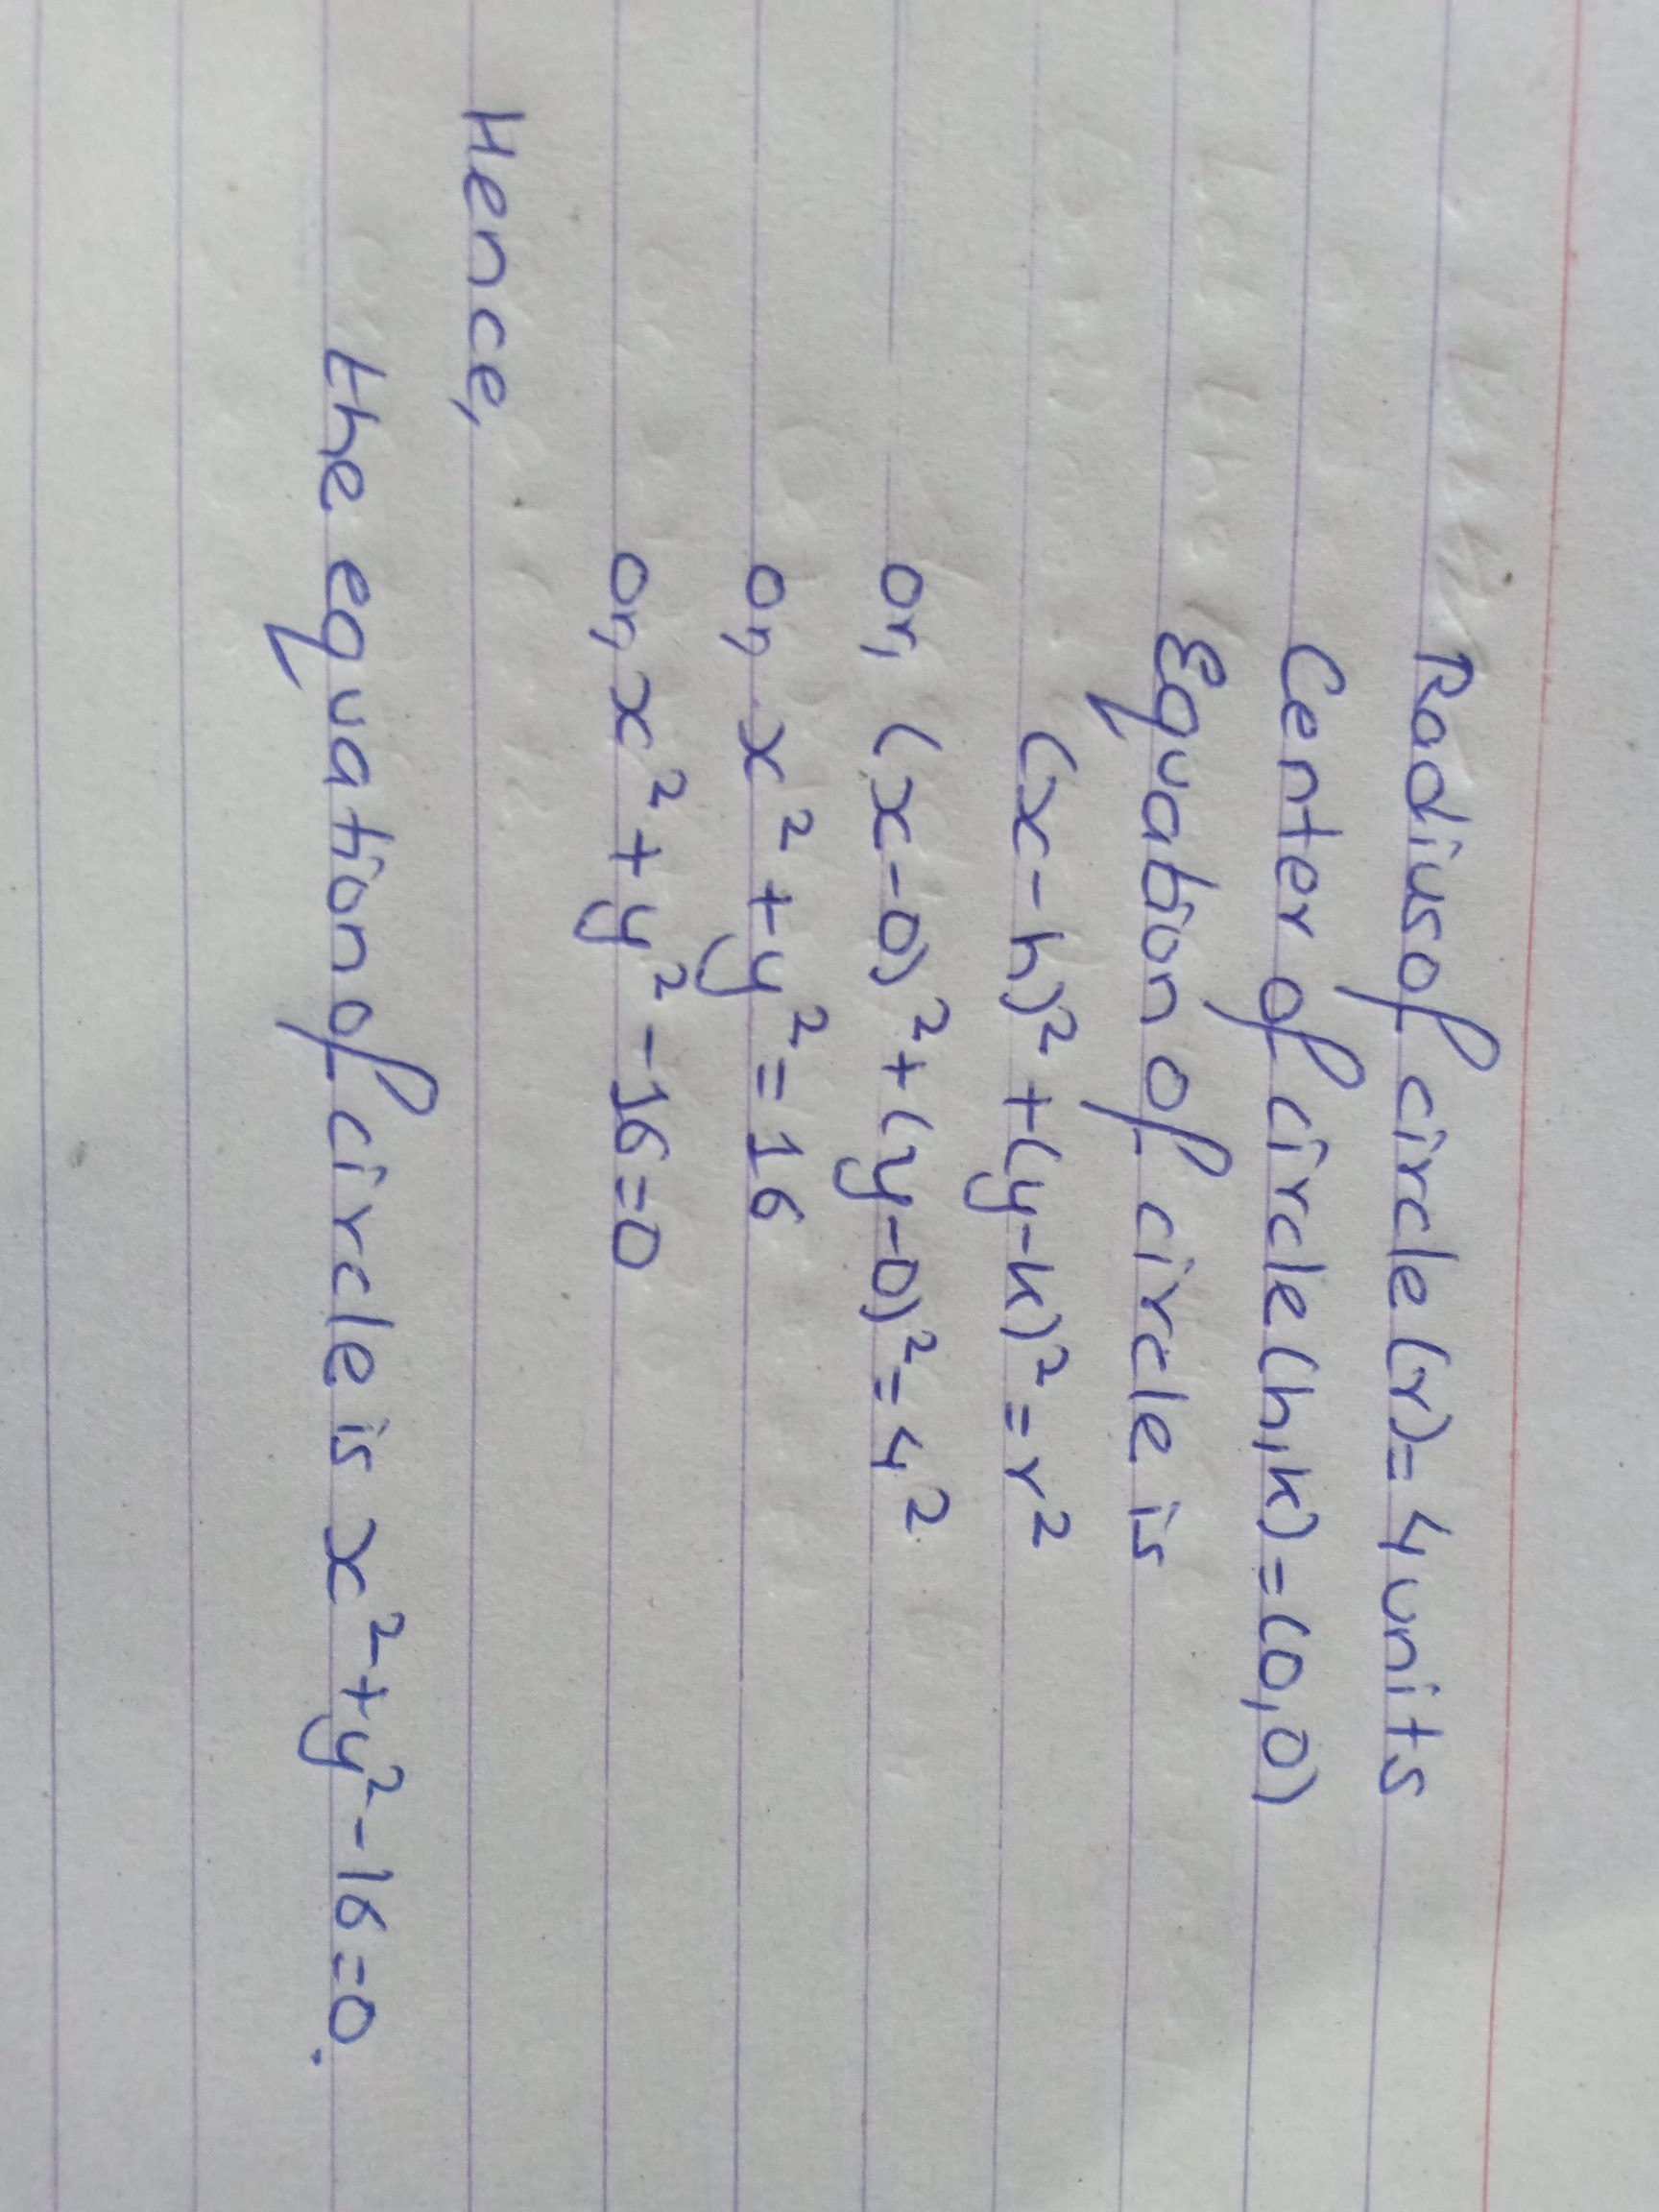 Radius of circle (r) = 4 units
Center of circle (h,k) = (0,0)
Equation of circle is
(x-h)² + (y-k)² = r²
or, (x-0)² + (y-0)² = 4²
or, x² + y² = 16
or, x² + y² - 16 = 0
Hence,
the equation of circle is x² + y² - 16 = 0.